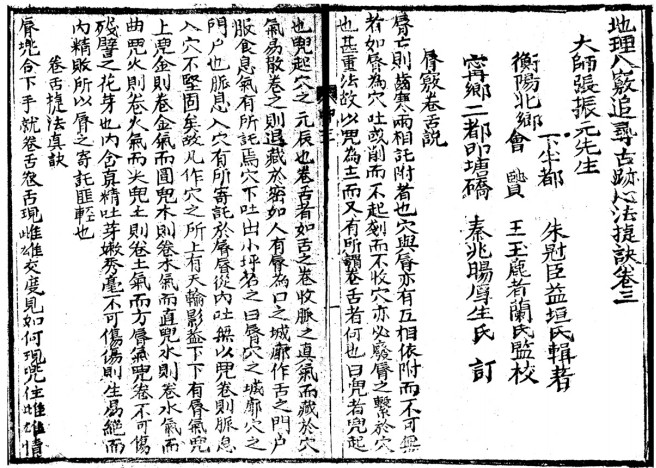 地理八竅追尋古跡心法捷訣卷三
大師張振元先生
下半都 朱尉臣益垣氏輯者
衡陽北鄉會 贒 王玉鹿者蘭氏監校
甯鄉二都印塘礄 秦兆賜厚生氏 訂
唇竅卷舌説
唇亡則齒寒兩相託附者也穴與唇亦有互相依附而不可無
者如唇為穴吐或削而不起剗而不收穴亦必廢唇之繫於穴
也甚重法故以兜為主而又有所謂卷舌者何也曰兜者兜起
也兜起穴之元辰也卷舌者如舌之卷收脈之真氣而藏於穴
氣易散卷之則退藏於密如人有唇為口之城廓作舌之門户
服食息氣有所託焉穴下吐出小坪名之曰唇穴之城廓穴之
門户也脈息入穴有所寄託於唇唇從內吐無以兜卷則脈息
入穴不堅固矣故凡作穴之所上有天輪影益下下有唇氣兜
上兜金則卷金氣而圓兜木則卷木氣而直兜水則卷水氣而
曲兜火則卷火氣而尖兜土則卷土氣而方唇氣兜卷不可傷
殘譬之花芽也內含真精吐芽嫩秀毫不可傷傷則生易絕而
內精賑所以唇之寄託匪輊也
卷舌捷法真訣
唇堍合下手就卷舌卷舌現雌雄交度見如何現兜住雌雄情